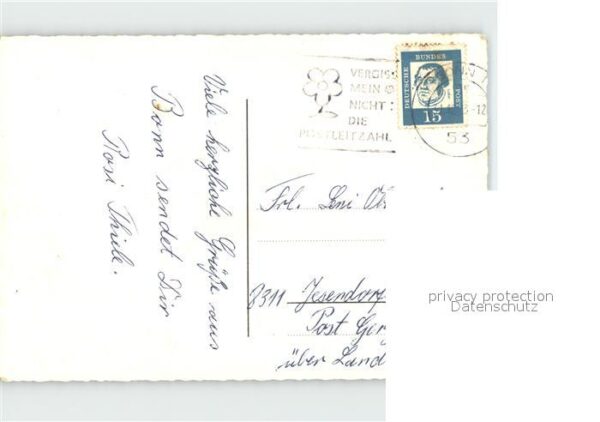 Viele herzliche Grüße aus
Bonn sendet Dir
Rosi Thiele.
VERGISS
MEIN
NICHT
DIE
POSTLEITZAHL
DEUTSCHE
BUNDES
POST
15
-12
53
Frl. Leni
8311 Jesendorf
Post
über Land
privacy protection
Datenschutz